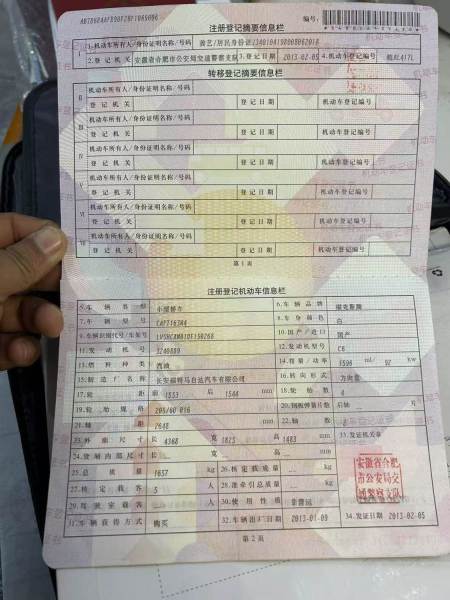 注册登记摘要信息栏
编号:
I
1.机动车所有人/身份证明名称/号码
居民身份证
2.登记机关 安徽省合肥市公安局交通警察支队 3.登记日期 2013-02-05 4.机动车登记编号
转移登记摘要信息栏
II
机动车所有人/身份证明名称/号码
登记机关 登记日期 机动车登记编号
III
机动车所有人/身份证明名称/号码
登记机关 登记日期 机动车登记编号
IV
机动车所有人/身份证明名称/号码
登记机关 登记日期 机动车登记编号
V
机动车所有人/身份证明名称/号码
登记机关 登记日期 机动车登记编号
VI
机动车所有人/身份证明名称/号码
登记机关 登记日期 机动车登记编号
VII
机动车所有人/身份证明名称/号码
登记机关 登记日期 机动车登记编号
第1页
注册登记机动车信息栏
5.车辆类型 小型轿车 6.车辆品牌 福克斯牌
7.车辆型号 8.车身颜色 白
9.车辆识别代号/车架号 10.国产/进口 国产
11.发动机号 12.发动机型号 C6
13.燃料种类 汽油 14.排量/功率 1596 ml/ 92 kw
15.制造厂名称 长安福特马自达汽车有限公司 16.转向形式 方向盘
17.轮距 前 1553 后 1544 mm 18.轮胎数 4
19.轮胎规格 205/60 R16 20.钢板弹簧片数 后轴 片
21.轴距 2648 mm 22.轴数 2
23.外廓尺寸 长 4368 宽 1823 高 1483 mm 33.发证机关章
24.货厢内部尺寸 长 宽 高 mm
安徽省合肥
市公安局交
通警察支队
25.总质量 1637 kg 26.核定载质量 kg
27.核定载客 5 人 28.准牵引总质量 kg
29.驾驶室载客 人 30.使用性质 非营运
31.车辆获得方式 购买 32.车辆出厂日期 2013-01-09 34.发证日期 2013-02-05
第2页